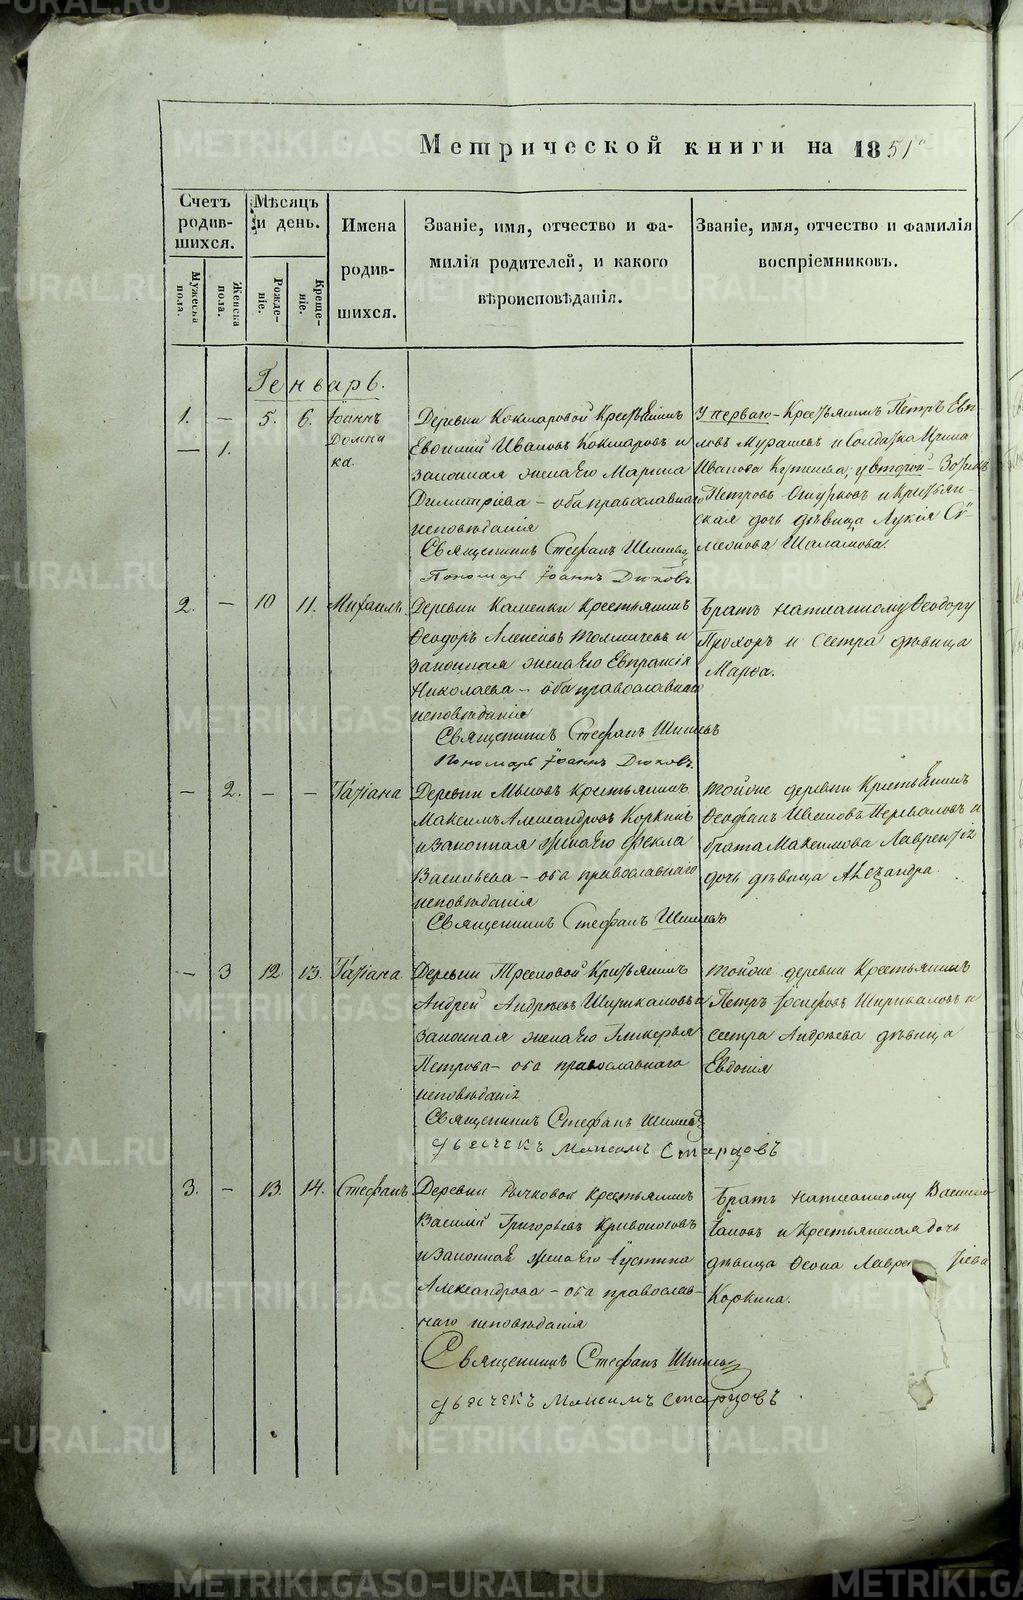 Метрической книги на 1851й
Счетъ родив-шихся.
Мѣсяцъ и день.
Имена родив-шихся.
Званіе, имя, отчество и фа-
милія родителей, и какого
вѣроисповѣданія.
Званіе, имя, отчество и фамилія
воспріемниковъ.
Мужеска пола.
Женска пола.
Рожде-ніе.
Креще-ніе.
Генварь.
1. — 5. 6. Іоаннъ
— 1. Домни
ка.
Деревни Кокшаровой Крестьянинъ
Евдокимъ Ивановъ Кокшаровъ и
законная жена его Марина
Димитріева – оба православнаго
исповѣданія
Священникъ Стефанъ
Пономарь Іоаннъ Дюковъ.
У перваго – Крестьянинъ Петръ
Мурашевъ и Солдатка Ирина
Иванова у второй –
Петровъ и Крестьян-
ская дочь дѣвица Лукія Си-
меонова Шаламова.
2. — 10 11. Михаилъ
Деревни Каменки Крестьянинъ
Ѳеодоръ Алексѣевъ Толмачевъ и
законная жена его Евпраксія
Николаева – оба православнаго
исповѣданія
Священникъ Стефанъ
Пономарь Іоаннъ Дюковъ.
Братъ написанному Ѳеодору
Прохоръ и Сестра дѣвица
Марѳа.
— 2. — — Татіана
Деревни Мысовъ Крестьянинъ
Максимъ Александровъ Коркинъ
и законная жена его Ѳекла
Васильева – оба православнаго
исповѣданія
Священникъ Стефанъ
Тойже деревни Крестьянинъ
Ѳеофанъ Ивановъ Переваловъ и
брата Максимова Лаврентія
дочь дѣвица Александра.
— 3 12 13. Татіана.
Деревни Крестьянинъ
Андрей Андреевъ Ширикаловъ и
законная жена его Гликерья
Петрова – оба православнаго
исповѣданія
Священникъ Стефанъ
Дьячекъ Максимъ Старцовъ
Тойже деревни Крестьянинъ
Петръ Іосифовъ Ширикаловъ и
сестра Андреева дѣвица
Евдокія
3. — 13. 14. Стефанъ
Деревни Рычковой Крестьянинъ
Василій Григорьевъ Кривоноговъ
и законная жена его Іустина
Александрова – оба православ-
наго исповѣданія
Священникъ Стефанъ
Дьячекъ Максимъ Старцовъ
Братъ написанному Василію
и Крестьянская дочь
дѣвица
Коркина.
METRIKI.GASO-URAL.RU